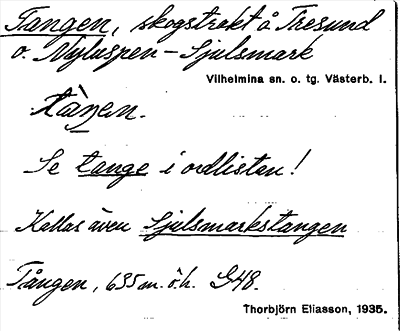 Tangen, skogstrakt å Tresund
o. Nyluspen - Sjulsmark
Vilhelmina sn. o. tg. Västerb. l.
tàŋen.
Se tange i ordlistan!
Kallas även Sjulsmarkstangen
Tången, 635 m. ö. h. G48.
Thorbjörn Eliasson, 1935.